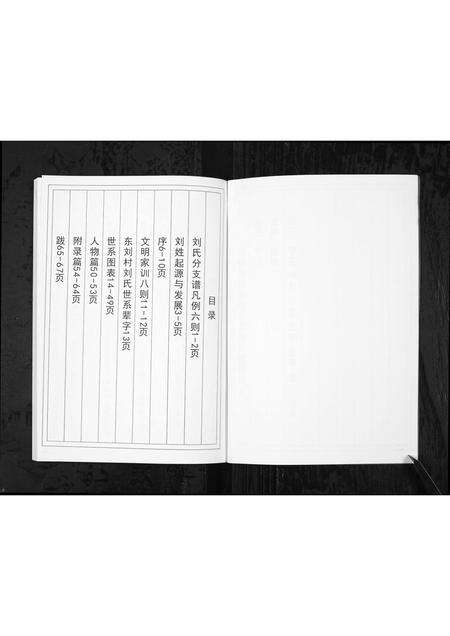 目录
刘氏分支谱凡例六则1-2页
刘姓起源与发展3-5页
序6-10页
文明家训八则11-12页
东刘村刘氏世系辈字13页
世系图表14-49页
人物篇50-53页
附录篇54-64页
跋65-67页